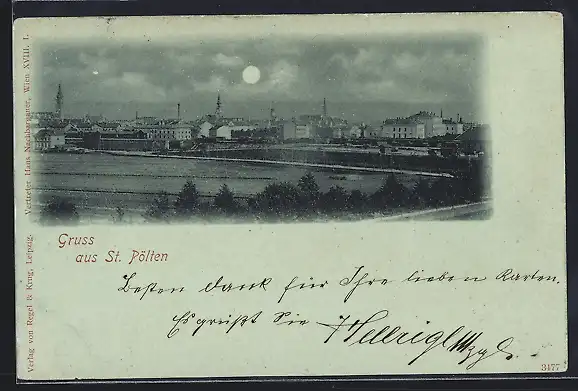 Gruss
aus St. Pölten
Besten dank für Ihre lieben Karten.
Es grüßt Sie Hellrigl
Verlag von Regel & Krug, Leipzig. Vertreter Hans Nachbargauer, Wien XVIII. 1.
3177